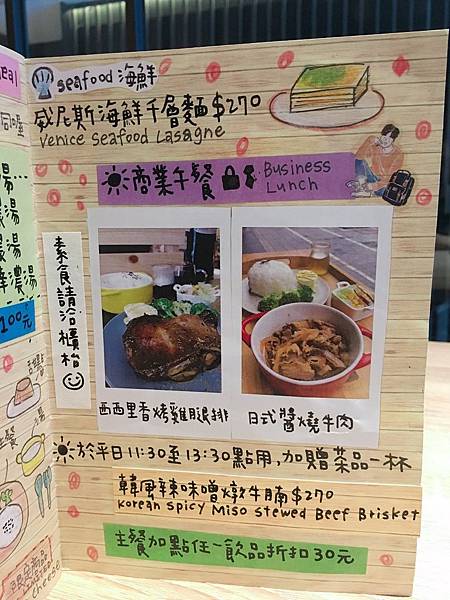 seafood 海鮮
威尼斯海鮮千層麵 $270
Venice Seafood Lasagne
商業午餐 Business
Lunch
素食請洽櫃枱
西西里香烤雞腿排
日式醬燒牛肉
於平日11:30至13:30點用,加贈茶品一杯
韓風辣味噌燉牛腩$270
Korean Spicy Miso Stewed Beef Brisket
主餐加點任一飲品折扣30元
eal
湯...
濃湯
湯
濃湯
100元
cheese